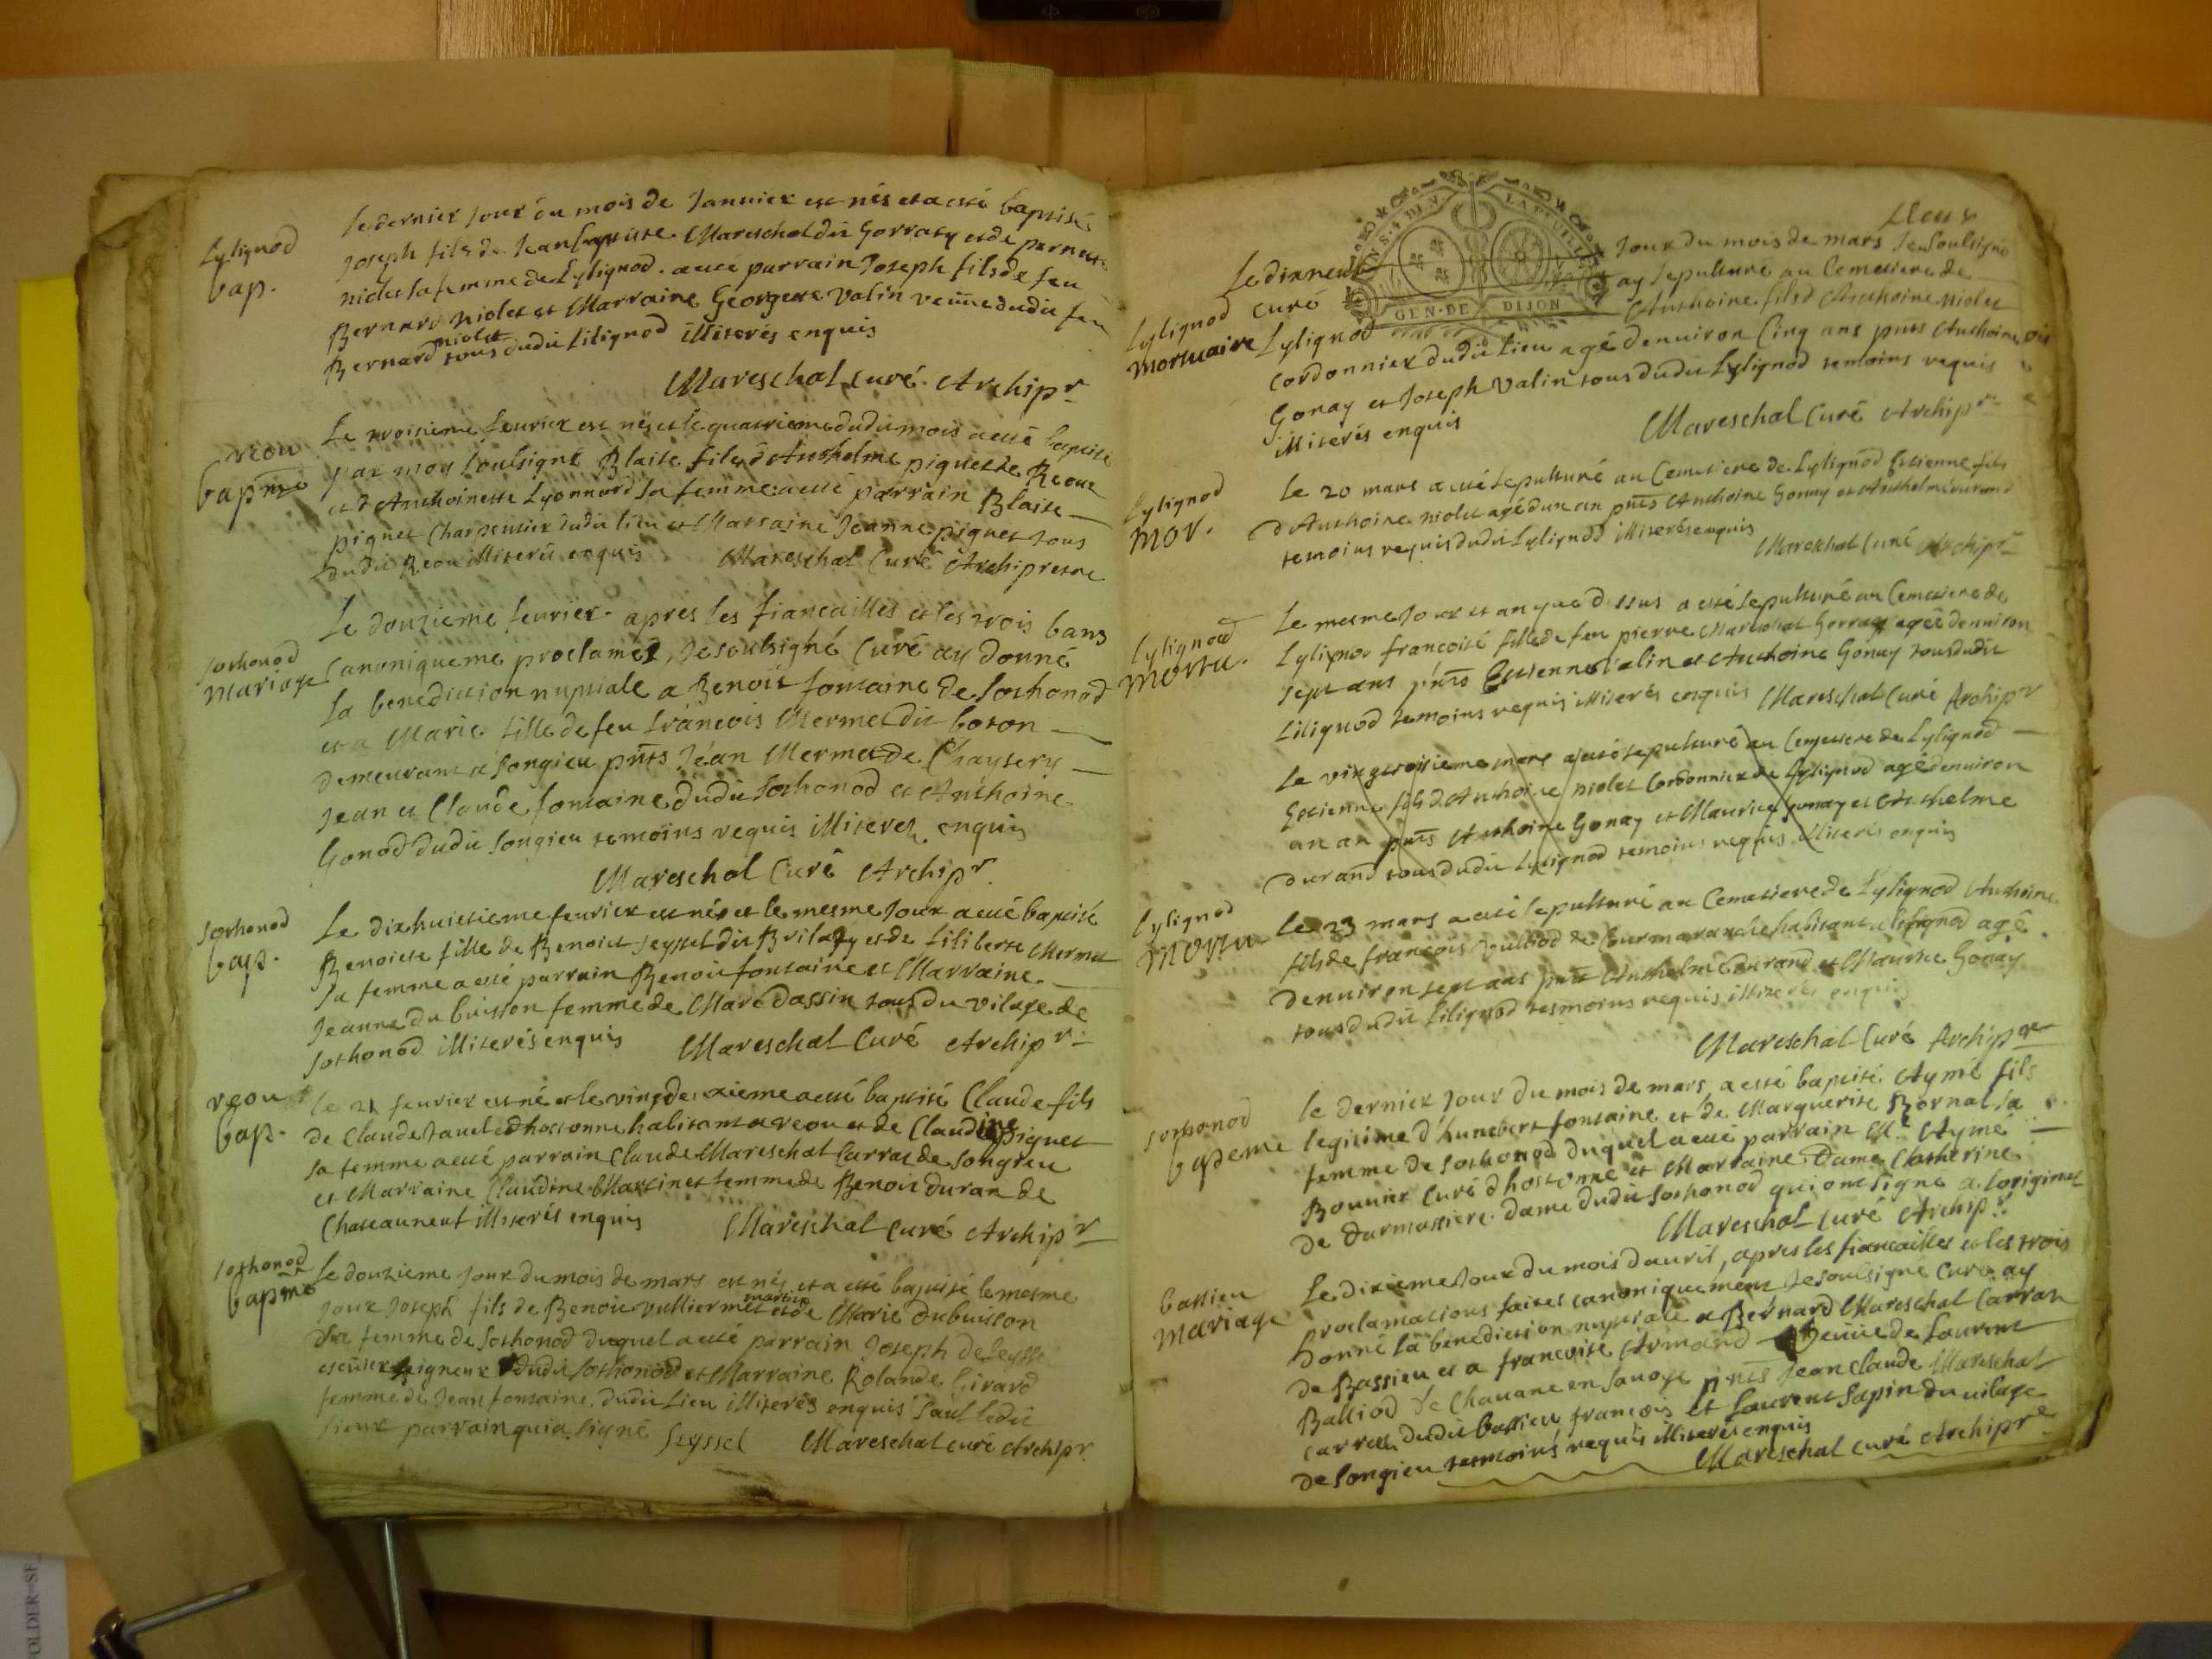 Lylignod
bap.
le dernier jour du mois de Januier est nés et a esté baptisé
Joseph fils de Jean baptiste Mareschal dit Gorraty et de pernette
niolet sa femme de Lylignod. a esté parrain Joseph fils de feu
Bernard niolet et Marraine Georgette Valin veüue dudit feu
Bernard niolet tous dudit Lilignod illiterés enquis
Mareschal Curé Archipr
reou
bapme
Le troisieme feurier est nés et le quatrieme dudit mois a esté baptisé
par moy soubsigné Blaise fils d'Anthelme piguet de Reoux
et d'Anthoinette Lyonnard sa femme a esté parrain Blaise
piguet Charpentier dudit lieu et Marraine Jeanne piguet tous
dudit Reou illiterés enquis Mareschal Curé Archiprestre
sothonod
mariage
Le douzieme feurier apres les fiancailles et les trois bans
Canoniqueme proclamez, Je soulsigné Curé ay donné
la benediction nuptiale a Benoit fontaine de Sothonod
et a Marie fille de feu françois Mermet dit boton
demeurant a Songieu pnts Jean Mermet de Chaysery
Jean et Claude fontaine dudit Sothonod et Anthoine
Gonod dudit Songieu temoins requis illiterez enquis
Mareschal Curé Archipr
sothonod
bap.
Le dixhuictieme feurier est nés et le mesme Jour a esté baptisé
Benoiste fille de Benoict Seyssel dit Brilaty et de Liliberte Mermet
sa femme a esté parrain Benoit fontaine et Marraine
Jeanne du buisson femme de Marc dassin tous du vilage de
Sothonod illiterés enquis Mareschal Curé Archipr
reou
bap.
le 21 feurier est né et le vingdeuxieme a esté baptisé Claude fils
de Claude Jauel dhostonne habitant a reou et de Claudine piguet
sa femme a esté parrain Claude Mareschal Carraz de Songieu
et Marraine Claudine Martinet femme de Benoit Duran de
Chateauneuf illiterés enquis Mareschal Curé Archipr
sothonod
bapme
Le douzieme Jour du mois de mars est nés et a esté baptisé le mesme
Jour Joseph fils de Benoit vulliermet martin et de Marie dubuisson
sa femme de Sothonod duquel a esté parrain Joseph de Seyssel
escuier seigneur dudit Sothonod et Marraine Rolande Girard
femme de Jean fontaine dudit Lieu illiterés enquis Sauf ledit
sieur parrain qui a signé Seyssel Mareschal curé Archipr.
GEN. DE DIJON
Lylignod
mortuaire
Le dixneuf Jour du mois de mars Je soulsigné
Curé ay sepulturé au Cemetiere de
Lylignod Anthoine fils d'Anthoine niolet
Cordonnier dudit Lieu agé denuiron Cinq ans pnts Anthoine
Gonay et Joseph Valin tous dudit Lylignod temoins requis
illiterés enquis
Mareschal Curé Archipr
Lylignod
mor.
Le 20 mars a esté sepulturé au Cemetiere de Lylignod Estienne fils
d'Anthoine niolet agé dun an pnts Anthoine Gonay et Anthelme durand
temoins requis dudit Lylignod illiterés enquis
Mareschal Curé Archipr
Lylignod
mortu.
Le mesme Jour et an que dessus a esté sepulturé au Cemetiere de
Lylignod francoise fille de feu pierre Mareschal Gorraty agée denuiron
sept ans pnts Estienne Valin et Anthoine Gonay tous dudit
Lilignod temoins requis illiterés enquis Mareschal Curé Archipr
Le vingtroisieme mars a esté sepulturé au Cemetiere de Lylignod
Estienne fils d'Anthoine niolet Cordonnier de Lylignod agé denuiron
un an pnts Anthoine Gonay et Maurice Gonay et Anthelme
durand tous dudit Lylignod temoins requis illiterés enquis
Lylignod
mortu
Le 23 mars a esté sepulturé au Cemetiere de Lylignod Anthoine
fils de francois habitant a Lilignod agé
denuiron sept ans pnts Anthelme durand et Maurice Gonay
tous dudit Lilignod tesmoins requis illiterés enquis
Mareschal Curé Archipr
sothonod
bapteme
le dernier Jour du mois de mars a esté baptisé Aymé fils
legitime d'hunebert fontaine et de Marguerite Bornat sa
femme de Sothonod duquel a esté parrain Mre Aymé
Bouuier Curé dhostonne et Marraine Dame Catherine
de Darmassiere dame dudit Sothonod qui ont signé a loriginal
Mareschal Curé Archipr
bassieu
mariage
Le dixieme Jour du mois dauril, apres les fiancailles et les trois
proclamations faites canoniquement Je soulsigné Curé ay
donné la benediction nuptiale a Bernard Mareschal Carraz
de Bassieu et a francoise Armand veüue de Laurent
Balliod de Chauane en Sauoye pnts Jean Claude Mareschal
carraz dudit bassieu francois et Laurent Sapin du uilage
de Songieu tesmoins requis illiterés enquis
Mareschal curé Archipre